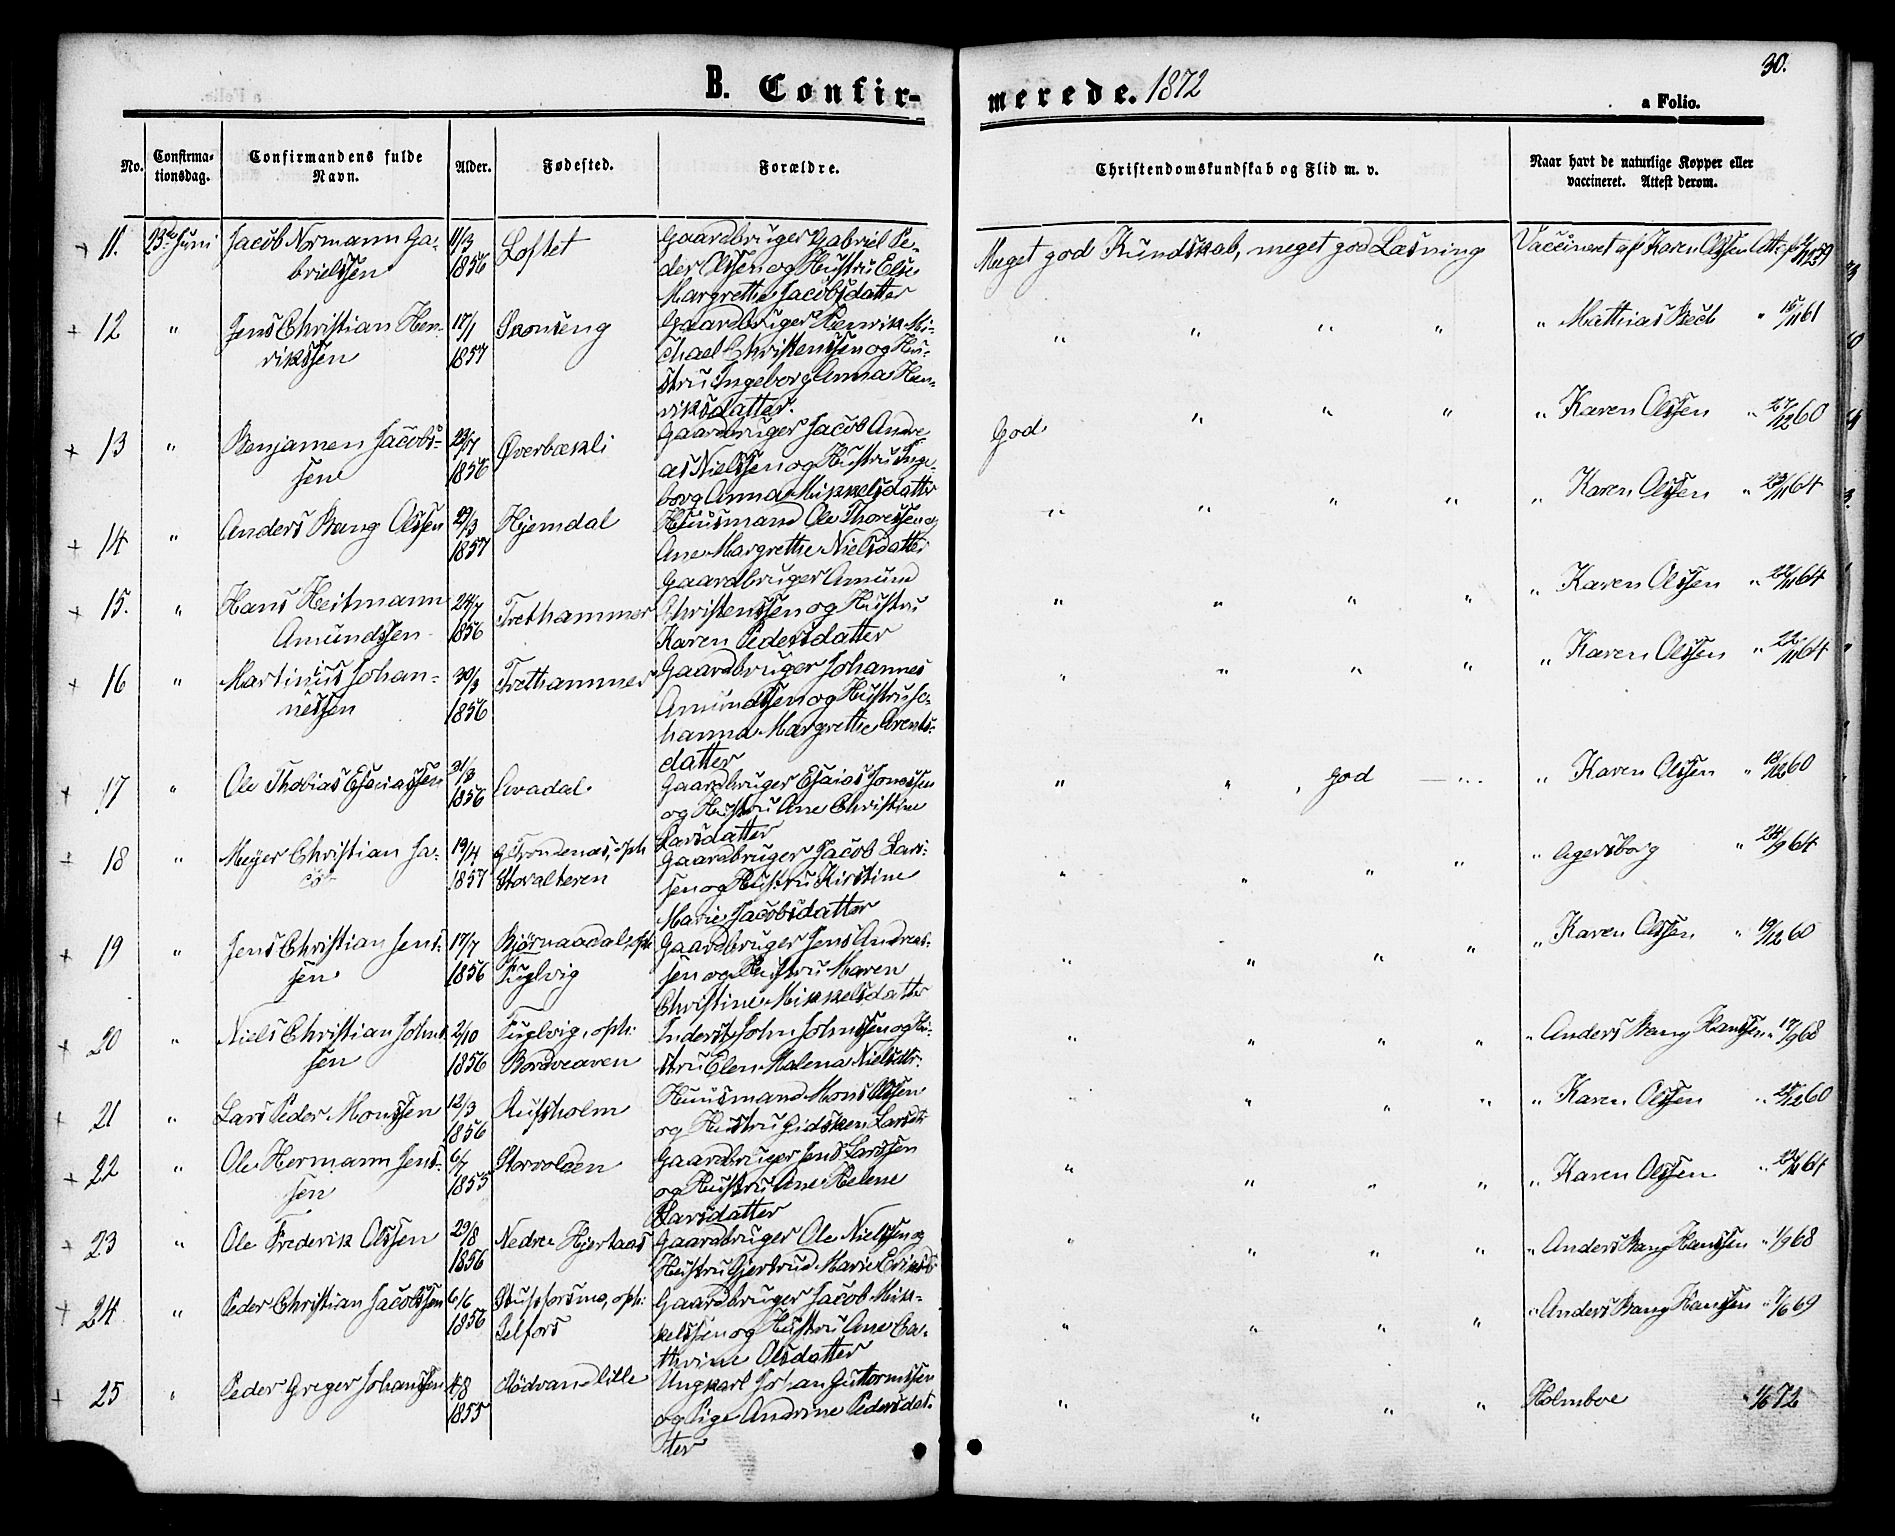 30.
B. Confir-
merede. 1872
a Folio.
No.
Confirma-
tionsdag.
Confirmandens fulde
Navn.
Alder.
Fødested.
Forældre.
Christendomskundskab og Flid m. v.
Naar havt de naturlige Kopper eller
vaccineret. Attest derom.
11. 23de Juni Jacob Normann Ga-
brielssen
11/3
1856
Loftet
Gaardbruger Gabriel Pe-
der Olssen og Hustru Else
Margrethe Jacobsdatter
Meget god Kundskab, meget god Læsning
Vaccineret af Karen Olssen Att. af
12 " Jens Christian Hen-
rikssen
17/1
1857
Skonseng
Gaardbruger Henrik Mi-
chael Christenssen og Hu-
stru Ingeborg Anna Hen-
riksdatter.
" " " "
" Mathias Bech " 15/11 61
13 " Benjamen Jacobs-
sen
23/7
1856
Øverbækli
Gaardbruger Jacob Andre-
as Nielssen og Hustru Inge-
borg Anna Mikkelsdatter
God " " "
" Karen Olssen " 27/12 60
14 " Anders Bang Olssen
29/3
1857
Hjemdal
Huusmand Ole Thoressen og
Ane Margrethe Nielsdatter
" " " "
" Karen Olssen " 23/11 64
15. " Hans Heitmann
Amundssen
24/7
1856
Trethammer
Gaardbruger Amund
Christenssen og Hustru
Karen Pedersdatter
" " " "
" Karen Olssen " 22/11 64
16 " Martinius Johan-
nessen
30/3
1856
Trethammer
Gaardbruger Johannes
Amundssen og Hustru Jo-
hanna Margrethe Arents-
datter
" " " "
" Karen Olssen " 22/11 64
17 " Ole Thobias Esaiassen
31/3
1856
Gaardbruger Esaias Jonassen
og Hustru Ane Christine
Larsdatter
" " " god — "
" Karen Olssen " 18/12 60
18 " Meyer Christian Ja-
19/4
1857
Storalteren
Gaardbruger Jacob Lars-
sen og Hustru Kirstine
Marie Jacobsdatter
" " " "
" Agersborg " 24/9 64
19 " Jens Christian Jens-
sen
17/7
1856
Bjørnaadal, oph
Fuglvig
Gaardbruger Jens Andreas-
sen og Hustru Maren
Christine Mikkelsdatter
" " " "
" Karen Olssen " 19/12 60
20 " Niels Christian Johns-
sen
2/10
1856
Fuglvig, oph:
Bordveaven
Inderst John Johnssen og Hu-
stru Elen Malena Nielsdtr.
" " " "
" Anders Bang Hanssen " 17/9 68
21 " Lars Peder Monssen
12/3
1856
Rufsholm
Huusmand Mons Olssen
og Hustru Gidsken Larsdtr
" " " "
" Karen Olssen " 25/12 60
22 " Ole Hermann Jens-
sen
6/7
1855
Storvolden
Gaardbruger Jens Larssen
og Hustru Ane Helene
Larsdatter
" " " "
" Karen Olssen " 23/11 64
23 " Ole Frederik Olssen
29/8
1856
Nedre Hjertaas
Gaardbruger Ole Nielssen og
Hustru Gjertrud Marie Eriksdtr
" " " "
" Anders Bang Hanssen " 1/9 68
24 " Peder Christian Jacobssen
6/6
1856
oph:
Selfors
Gaardbruger Jacob Mik-
kelssen og Hustru Ane Ca-
thrine Olsdatter
" " " "
" Anders Bang Hanssen " 7/6 69
25 " Peder Greger Johanssen
4/8
1855
Mødvand lille
Ungkarl Johan Guttormssen
og Pige Andrine Pedersdat-
ter
" " " "
Holmboe 1/6 72